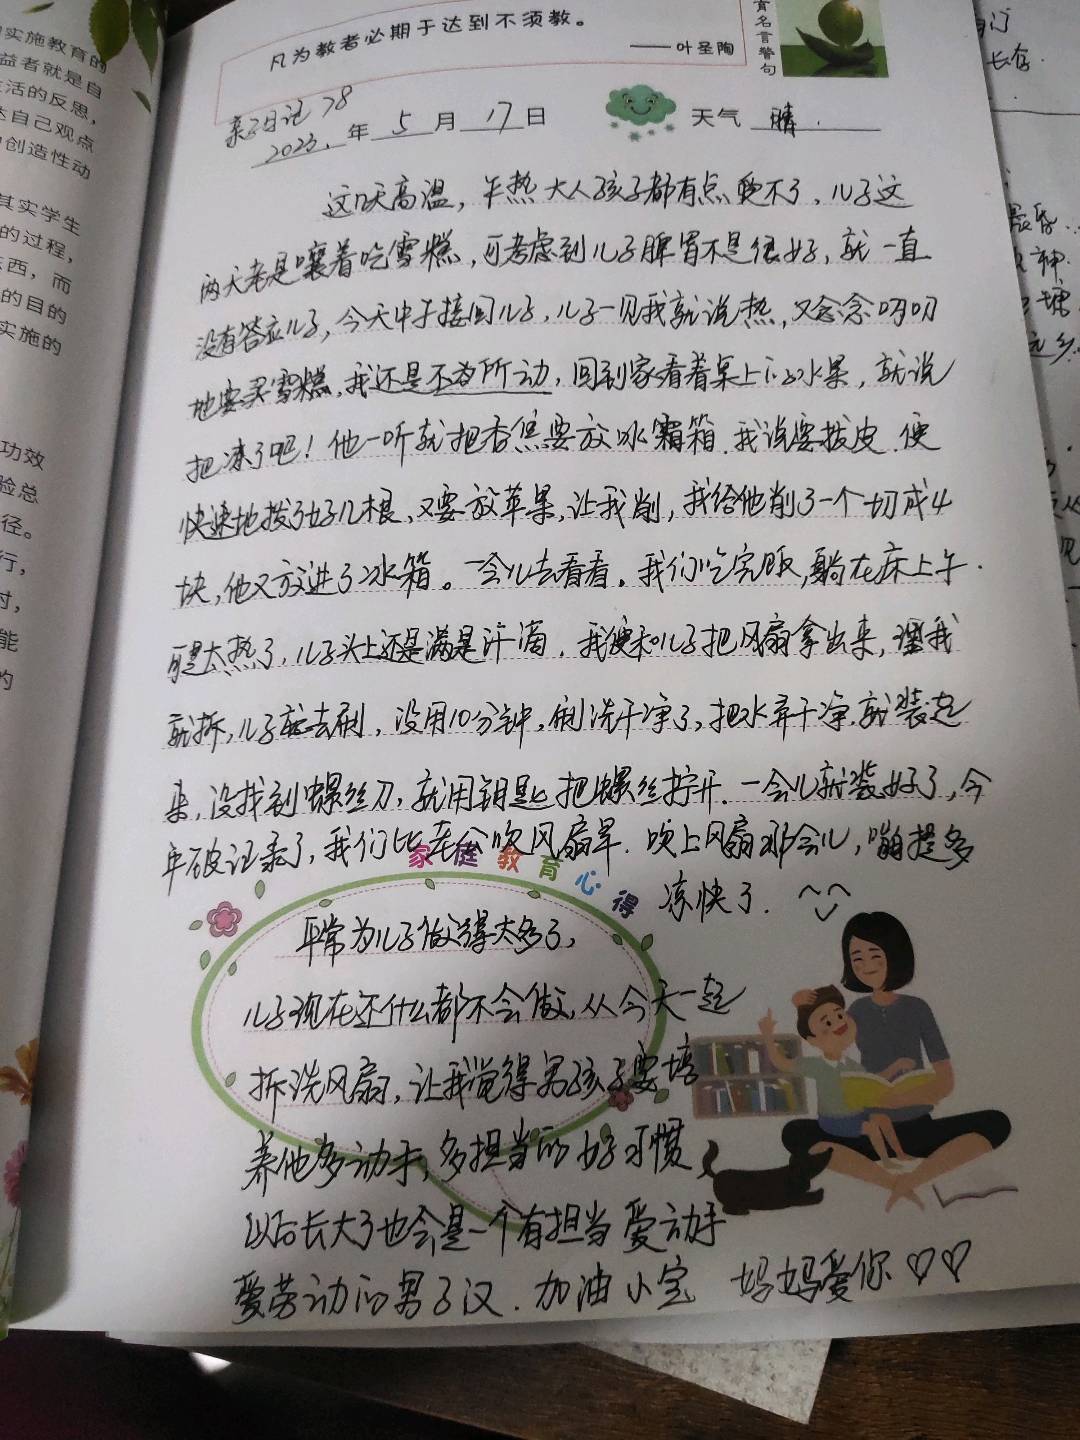 实施教育的
益者就是自
活的反思，
达自己观点
创造性动
其实学生
的过程，
东西，而
的目的
实施的
功效
验总
径。
行，
时，
能
的
凡为教者必期于达到不须教。
——叶圣陶
育名言警句
亲子日记78
2023.年5月17日 天气 晴.
这几天高温，午热大人孩子都有点受不了，儿子这
两天老是嚷着吃雪糕，可考虑到儿子脾胃不是很好，就一直
没有答应儿子，今天中午接回儿子，儿子一见我就说热，又念念叨叨
地要买雪糕，我还是不为所动，回到家看着桌上的水果，就说
把冻了吧！他一听就把香蕉要放冰霜箱，我说要拔皮，便
快速地拨了好几根，又要放苹果，让我削，我给他削了一个切成4
块，他又放进了冰箱。一会儿去看看。我们吃完饭，躺在床上午
是太热了，儿子头上还是满是汗滴，我便和儿子把风扇拿出来，我
就拆，儿子就去刷，没用10分钟，刷洗干净了，把水弄干净，就装起
来，没找到螺丝刀，就用钥匙把螺丝拧开，一会儿就装好了，今
年破记录了，我们比在公吹风扇早，吹上风扇那会儿，嘴提多
凉快了.
家庭教育心得
平常为儿子做得太多了，
儿子现在还什么都不会做，从今天一起
拆洗风扇，让我觉得男孩子要培
养他多动手，多担当的好习惯
以后长大了也会是一个有担当 爱动手
爱劳动的男子汉. 加油小宝 妈妈爱你♡♡